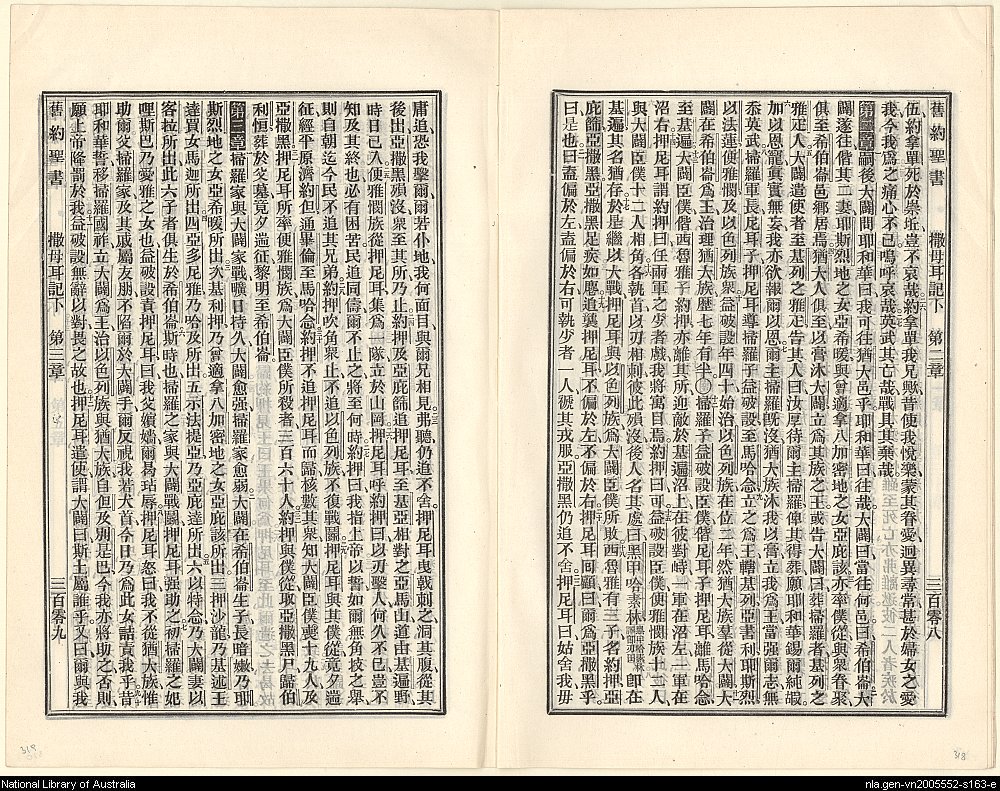 舊約聖書 撒母耳記下 第二章 三百零八
伍約拿單死於崇坵豈不哀哉約拿單我兄歟昔使我悅樂蒙其眷愛迥異尋常甚於婦女之愛
我今我爲之痛心不已嗚呼哀哉英武其亡哉戰具其棄哉
第二章嗣後大闢問耶和華曰我可往猶大邑乎耶和華曰往哉大闢曰當往何邑曰希伯崙大
闢遂往偕其二妻耶斯烈地之女亞希暖與曾適拿八加密地之女亞庇該亦率僕從與眾眷聚
俱至希伯崙邑鄉居焉猶大人俱至以膏沐大闢立爲其族之王或告大闢曰葬掃羅者基列之
雅疋人大闢遣使者至基列之雅疋告其人曰汝厚待爾主掃羅俾其得葬願耶和華錫爾純嘏
加以恩寵真實無妄我亦欲報爾以恩爾主掃羅既沒猶大族沐我以膏立我爲王當強爾志無
忝英武掃羅軍長尼耳子押尼耳導掃羅子益破設至馬哈念立之爲王轄基列亞書利耶斯烈
以法蓮便雅憫及以色列族眾益破設年四十始治以色列族在位二年然猶大族羣從大
闢在希伯崙爲王治理猶大族歷七年有半〇掃羅子益破設臣僕偕尼耳子押尼耳離馬哈念
至基遍大闢臣僕偕西魯雅子約押亦離其所迎敵於基遍沼上在彼對峙一軍在沼左一軍在
沼右押尼耳謂約押曰任兩軍之少者戲我將寓目焉約押曰可益破設臣僕便雅憫族十二人
與大闢臣僕十二人相角各執首以刃相刺彼此殞沒後人名其處曰黑甲哈素林即在
基遍其名猶存於是繼以大戰押尼耳與以色列族爲大闢臣僕所敗西魯雅有三子約押亞
庇篩亞撒黑亞撒黑足疾如麀追襲押尼耳不偏於左不偏於右押尼耳回顧曰爾爲亞撒黑乎
曰是也曰盍偏於左盍偏於右可執少者一人褫其戎服亞撒黑仍追不舍押尼耳曰姑舍我毋
庸追恐我擊爾爾若仆地我何面目與爾兄相見弗聽仍追不舍押尼耳曳戟刺之洞其腹從其
後出亞撒黑殞沒眾至其所乃止約押及亞庇篩追押尼耳至基亞相對之亞馬山道由基遍野
時日已入便雅憫族從押尼耳集爲一隊立於山岡押尼耳呼約押曰以刃擊人何久不已豈不
知及其終也必有困苦民追同儕爾不止之將至何時約押曰我指上帝以誓如爾無角埈之舉
則自朝迄今民不追其兄弟約押吹角眾止不追以色列族不復戰鬭押尼耳與其僕從竟夕遄
征經平原濟約但通畢倫至馬哈念約押不追押尼耳而歸核數其眾知大闢臣僕喪十九人及
亞撒黑押尼耳所率便雅憫族爲大闢臣僕所殺者三百六十人約押與僕從取亞撒黑尸歸伯
利恒葬於父墓竟夕遄征黎明至希伯崙
第三章掃羅家與大闢家戰曠日持久大闢愈强掃羅家愈弱大闢在希伯崙生子長暗嫩乃耶
斯烈地之女亞希暖所出次基利押乃曾適拿八加密地之女亞庇該所出三押沙龍乃基述王
達買女馬迦所出四亞多尼雅乃哈及所出五示法提亞乃亞庇達所出六以特念乃大闢妻以
客拉所出此六子者俱生於希伯崙斯時也掃羅之家與大闢戰鬭押尼耳强助之初掃羅之妃
哩斯巴乃愛雅之女也益破設責押尼耳曰我父嬪嬙爾曷玷辱押尼耳怒曰我不從猶大族惟
助爾父掃羅家及其戚屬友朋不陷爾於大闢手爾反視我若犬首今日乃爲此女詰責我乎昔
耶和華誓移掃羅國祚立大闢爲王治以色列族與猶大族自但及別是巴今我亦將助之否則
願上帝降罰於我益破設無辭以對畏之故也押尼耳遣使謂大闢曰斯土屬誰乎又曰爾與我
舊約聖書 撒母耳記下 第三章 三百零九
318
318
National Library of Australia
nla.gen-vn2005552-s163-e